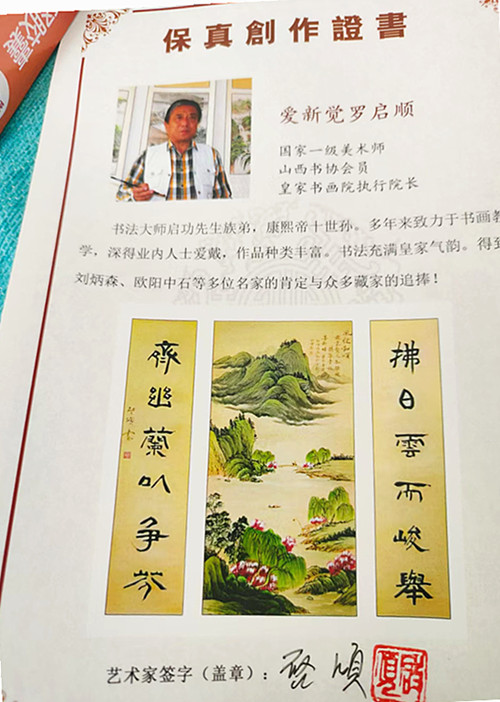 保真創作證書
爱新觉罗启顺
国家一级美术师
山西书协会员
皇家书画院执行院长
书法大师启功先生族弟，康熙帝十世孙。多年来致力于书画教
学，深得业内人士爱戴，作品种类丰富。书法充满皇家气韵。得到
刘炳森、欧阳中石等多位名家的肯定与众多藏家的追捧！
拂日雲而峻舉
齊幽蘭以争芬
艺术家签字（盖章）：啓順